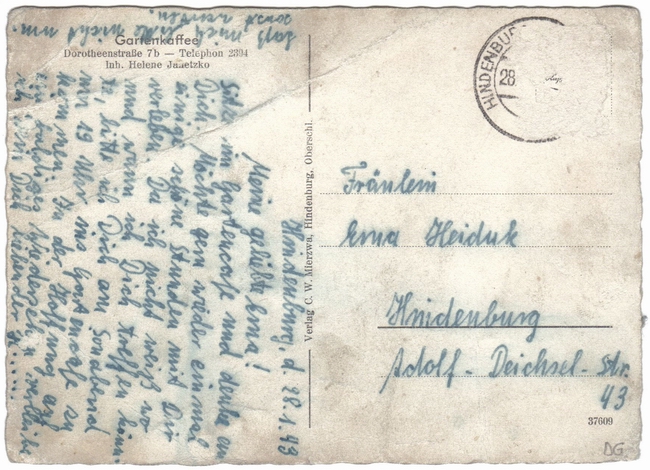 Gartenkaffee
Dorotheenstraße 7b — Telephon 2394
Inh. Helene Janetzko
Hindenburg, d. 28.1.43
Meine geliebte Erna!
Sitze im Gartenkaffe und denke an
Dich. Möchte gern wieder einmal
einige schöne Stunden mit Dir
verleben. Da ich nicht weiß wo
und wann ich Dich treffen kann
so bitte ich Dich am Sonnabend
um 19 Uhr ins Gartenkaffe zu
kommen. In der Hoffnung auf
ein Wiedersehn
ich Dich
Laß mich bitte nicht um
sonst warten.
Verlag C. W. Mierzwa, Hindenburg, Oberschl.
HINDENBU
28.
Fräulein
Erna Heiduk
Hindenburg
Adolf-Deichsel-Str.
43
37609
DG